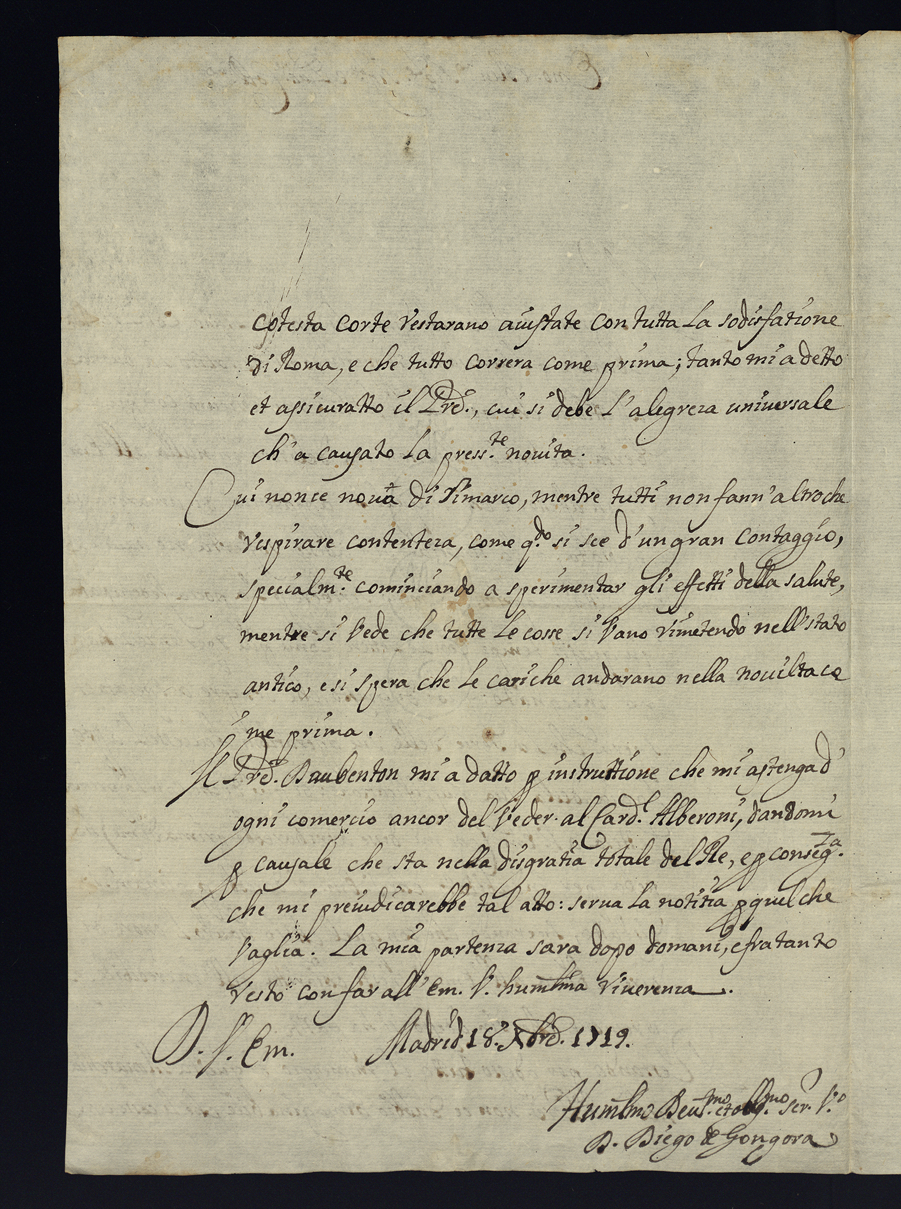 cotesta corte restarano aiustate con tutta la sodisfatione
di Roma, e che tutto correra come prima; tanto mi a detto
et assicuratto il Prē., cui si debe l'alegreza universale
ch'a causato la press.te novita.
Qui non ce novtà di rimarco, mentre tutti non fann'altro che
respirare contenteza, come q.do si sce d'un gran contaggio,
specialm.te cominciando a sperimentar gli effetti della salute,
mentre si vede che tutte le cosse si vano rimetendo nell'stato
antico, e si spera che le cariche andarano nella noviltà co
me prima.
Il Prē. Daubenton mi a datto p instruttione che mi astenga d'
ogni comercio ancor del veder al Card.l Alberoni, dandomi
p causale che sta nella disgratia totale del Re, e p conseq.za
che mi preiudicarebbe tal atto: serva la notitia p quel che
vaglia. La mia partenza sara dopo domani, e fra tanto
resto con far all'Em. V. humilma riverenza.
D. V. Em. Madrid 18. Xbrē. 1719.
Humilmo Dev.mo et obbg.mo ser. V.o
D. Diego de Gongora